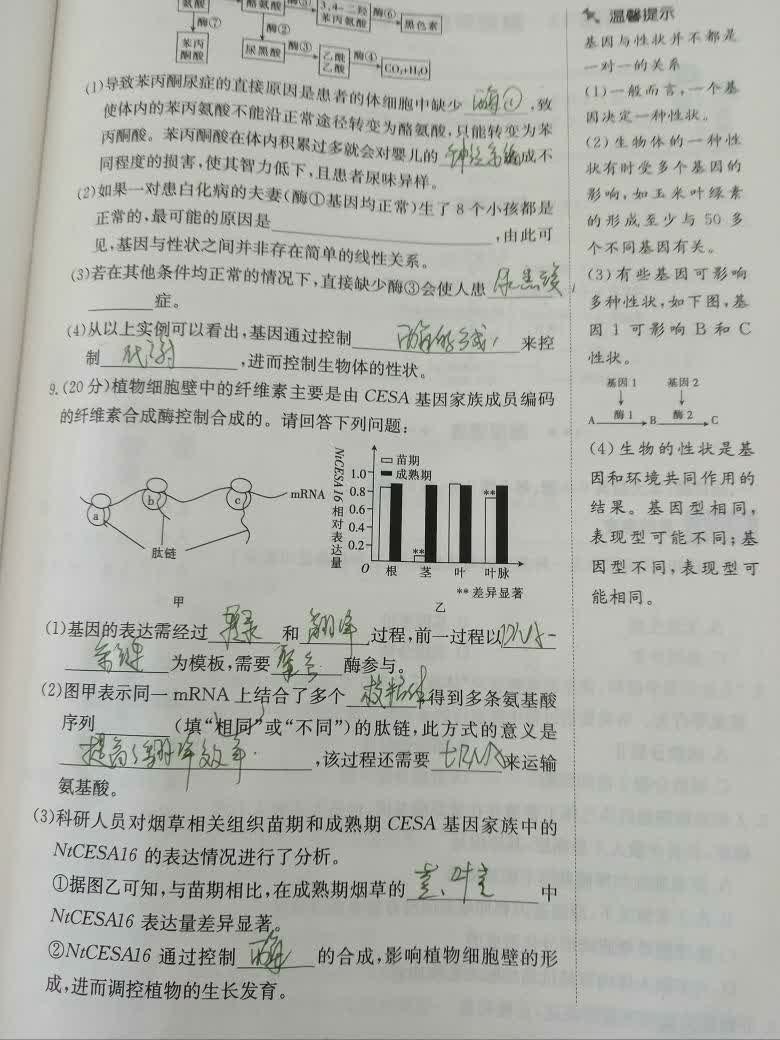 氨酸
酪氨酸
酶⑤
3,4-二羟
苯丙氨酸
酶⑥
黑色素
酶⑦
酶②
苯丙
酮酸
尿黑酸
酶③
乙酰
乙酸
酶④
CO₂+H₂O
(1)导致苯丙酮尿症的直接原因是患者的体细胞中缺少 酶① ,致
使体内的苯丙氨酸不能沿正常途径转变为酪氨酸,只能转变为苯
丙酮酸。苯丙酮酸在体内积累过多就会对婴儿的 神经系统 造成不
同程度的损害,使其智力低下,且患者尿味异样。
(2)如果一对患白化病的夫妻(酶①基因均正常)生了8个小孩都是
正常的,最可能的原因是
,由此可
见,基因与性状之间并非存在简单的线性关系。
(3)若在其他条件均正常的情况下,直接缺少酶③会使人患 尿黑酸
症。
(4)从以上实例可以看出,基因通过控制 酶的合成 来控
制 代谢 ,进而控制生物体的性状。
9.(20分)植物细胞壁中的纤维素主要是由CESA基因家族成员编码
的纤维素合成酶控制合成的。请回答下列问题:
a
b
c
mRNA
肽链
甲
NtCESA16相对表达量
苗期
成熟期
1.0
0.8
0.6
0.4
0.2
O
**
**
根 茎 叶 叶脉
**差异显著
乙
(1)基因的表达需经过 转录 和 翻译 过程,前一过程以 DNA一
条链 为模板,需要 聚合 酶参与。
(2)图甲表示同一mRNA上结合了多个 核糖体 得到多条氨基酸
序列 (填“相同”或“不同”)的肽链,此方式的意义是
提高了翻译效率. ,该过程还需要 tRNA 来运输
氨基酸。
(3)科研人员对烟草相关组织苗期和成熟期CESA基因家族中的
NtCESA16的表达情况进行了分析。
①据图乙可知,与苗期相比,在成熟期烟草的 茎、叶 中
NtCESA16表达量差异显著。
②NtCESA16通过控制 酶 的合成,影响植物细胞壁的形
成,进而调控植物的生长发育。
温馨提示
基因与性状并不都是
一对一的关系
(1)一般而言,一个基
因决定一种性状。
(2)生物体的一种性
状有时受多个基因的
影响,如玉米叶绿素
的形成至少与50多
个不同基因有关。
(3)有些基因可影响
多种性状,如下图,基
因1可影响B和C
性状。
基因1 基因2
A 酶1 B 酶2 C
(4)生物的性状是基
因和环境共同作用的
结果。基因型相同,
表现型可能不同;基
因型不同,表现型可
能相同。